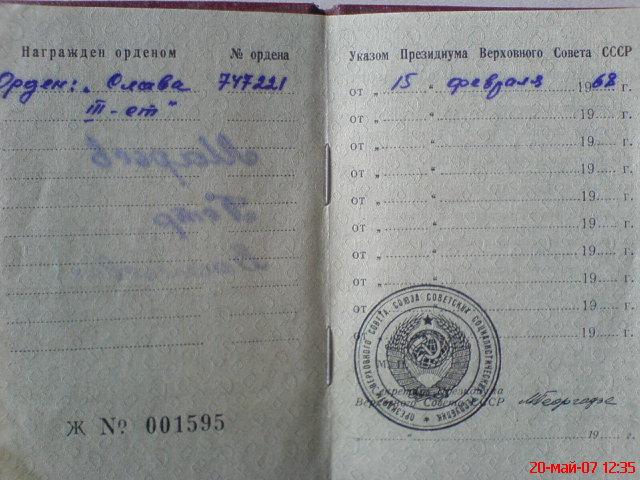 Награжден орденом № ордена
Орден: „Слава 747221
III-ст"
Ж № 001595
Указом Президиума Верховного Совета СССР
от „ 15 " февраля 1968 г.
от „ " 19 г.
от „ " 19 г.
от „ " 19 г.
от „ " 19 г.
от „ " 19 г.
от „ " 19 г.
от „ " 19 г.
от „ " 19 г.
от „ " 19 г.
ПРЕЗИДИУМ ВЕРХОВНОГО СОВЕТА СОЮЗА СОВЕТСКИХ СОЦИАЛИСТИЧЕСКИХ РЕСПУБЛИК
Секретарь Президиума
Верховного Совета СССР МГеоргадзе
„ " 19 г.
20-май-07 12:35